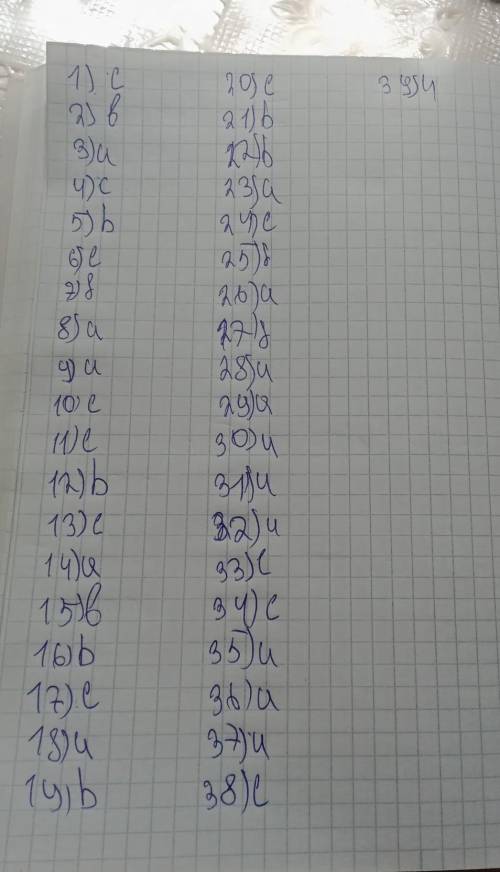 1) c
2) b
3) a
4) c
5) b
6) c
7) b
8) a
9) a
10) c
11) c
12) b
13) c
14) a
15) b
16) b
17) c
18) a
19) b
20) c
21) b
22) b
23) a
24) c
25) b
26) a
27) b
28) a
29) a
30) a
31) a
32) a
33) c
34) c
35) a
36) a
37) a
38) c
39) a